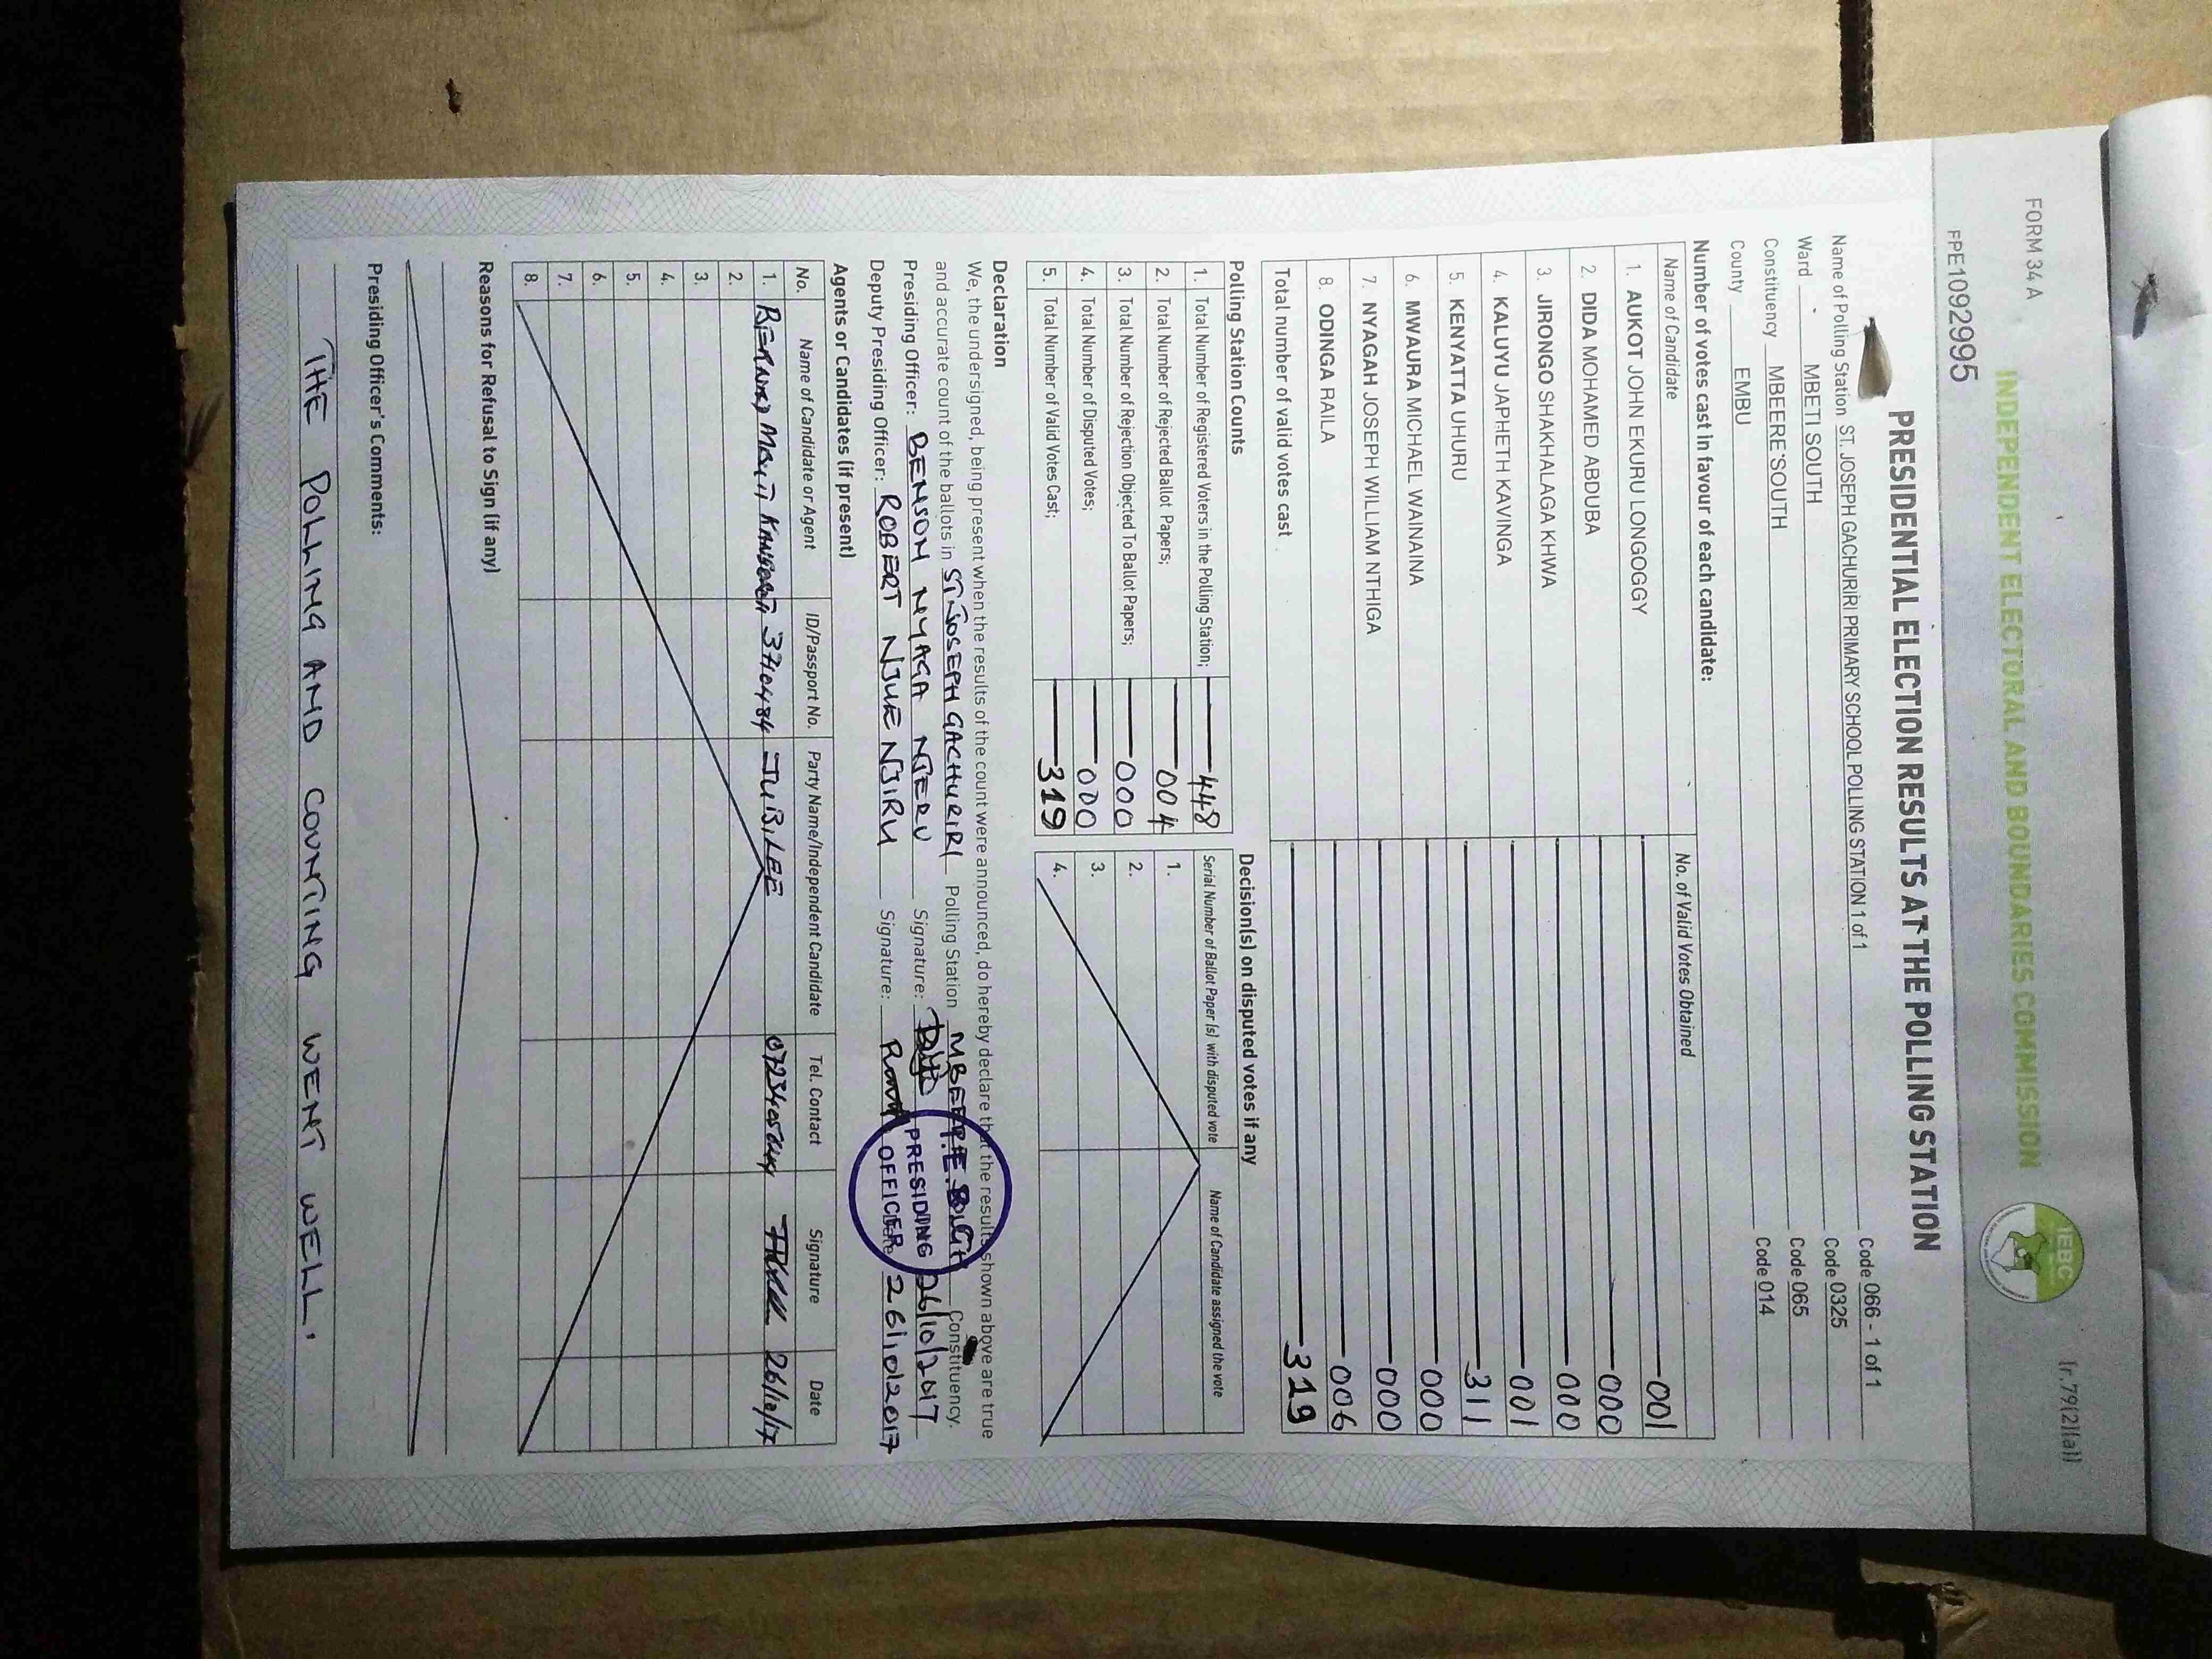 FORM 34 A
(r.79(2)(a))
INDEPENDENT ELECTORAL AND BOUNDARIES COMMISSION
IEBC
FPE1092995
PRESIDENTIAL ELECTION RESULTS AT THE POLLING STATION
Name of Polling Station ST. JOSEPH GACHURIRI PRIMARY SCHOOL POLLING STATION 1 of 1 Code 066 - 1 of 1
Ward MBETI SOUTH Code 0325
Constituency MBEERE SOUTH Code 065
County EMBU Code 014
Number of votes cast in favour of each candidate:
Name of Candidate No. of Valid Votes Obtained
1. AUKOT JOHN EKURU LONGOGGY 001
2. DIDA MOHAMED ABDUBA 000
3. JIRONGO SHAKHALAGA KHWA 000
4. KALUYU JAPHETH KAVINGA 001
5. KENYATTA UHURU 311
6. MWAURA MICHAEL WAINAINA 000
7. NYAGAH JOSEPH WILLIAM NTHIGA 000
8. ODINGA RAILA 006
Total number of valid votes cast 319
Polling Station Counts
1. Total Number of Registered Voters in the Polling Station; 448
2. Total Number of Rejected Ballot Papers; 004
3. Total Number of Rejection Objected To Ballot Papers; 000
4. Total Number of Disputed Votes; 000
5. Total Number of Valid Votes Cast; 319
Decision(s) on disputed votes if any
Serial Number of Ballot Paper (s) with disputed vote Name of Candidate assigned the vote
1.
2.
3.
4.
Declaration
We, the undersigned, being present when the results of the count were announced, do hereby declare that the results shown above are true
and accurate count of the ballots in ST. JOSEPH GACHURIRI Polling Station MBEERE Constituency.
Presiding Officer: BENSON NYAGA NJERU Signature: 26/10/2017
Deputy Presiding Officer: ROBERT NJUE NJIRU Signature: Date 26/10/2017
PRESIDING
OFFICER
Agents or Candidates (if present)
No. Name of Candidate or Agent ID/Passport No. Party Name/Independent Candidate Tel. Contact Signature Date
1. 3710484 JUBILEE 26/10/17
2.
3.
4.
5.
6.
7.
8.
Reasons for Refusal to Sign (if any)
Presiding Officer's Comments:
THE POLLING AND COUNTING WENT WELL.